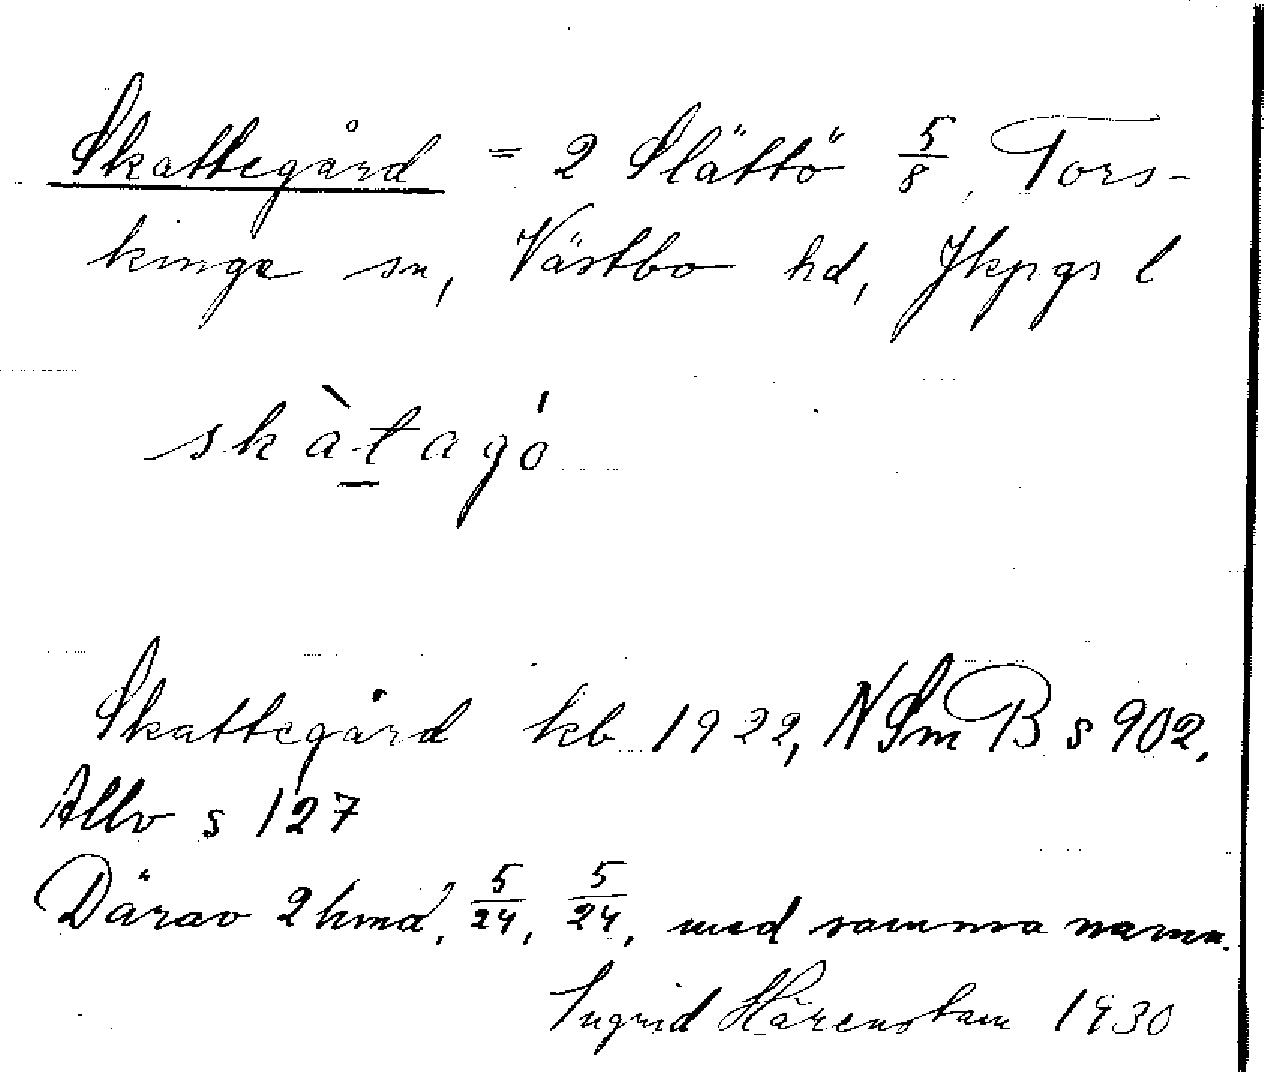 Skattegård = 2 Slättö 5/8, Tors-
kinge sn, Västbo hd, Jkpgs l
skàtagó
Skattegård kb 1922, NSmB s 902.
Allv s 127
Därav 2 hmd, 5/24, 5/24, med samma namn.
Ingrid Härenstam 1930